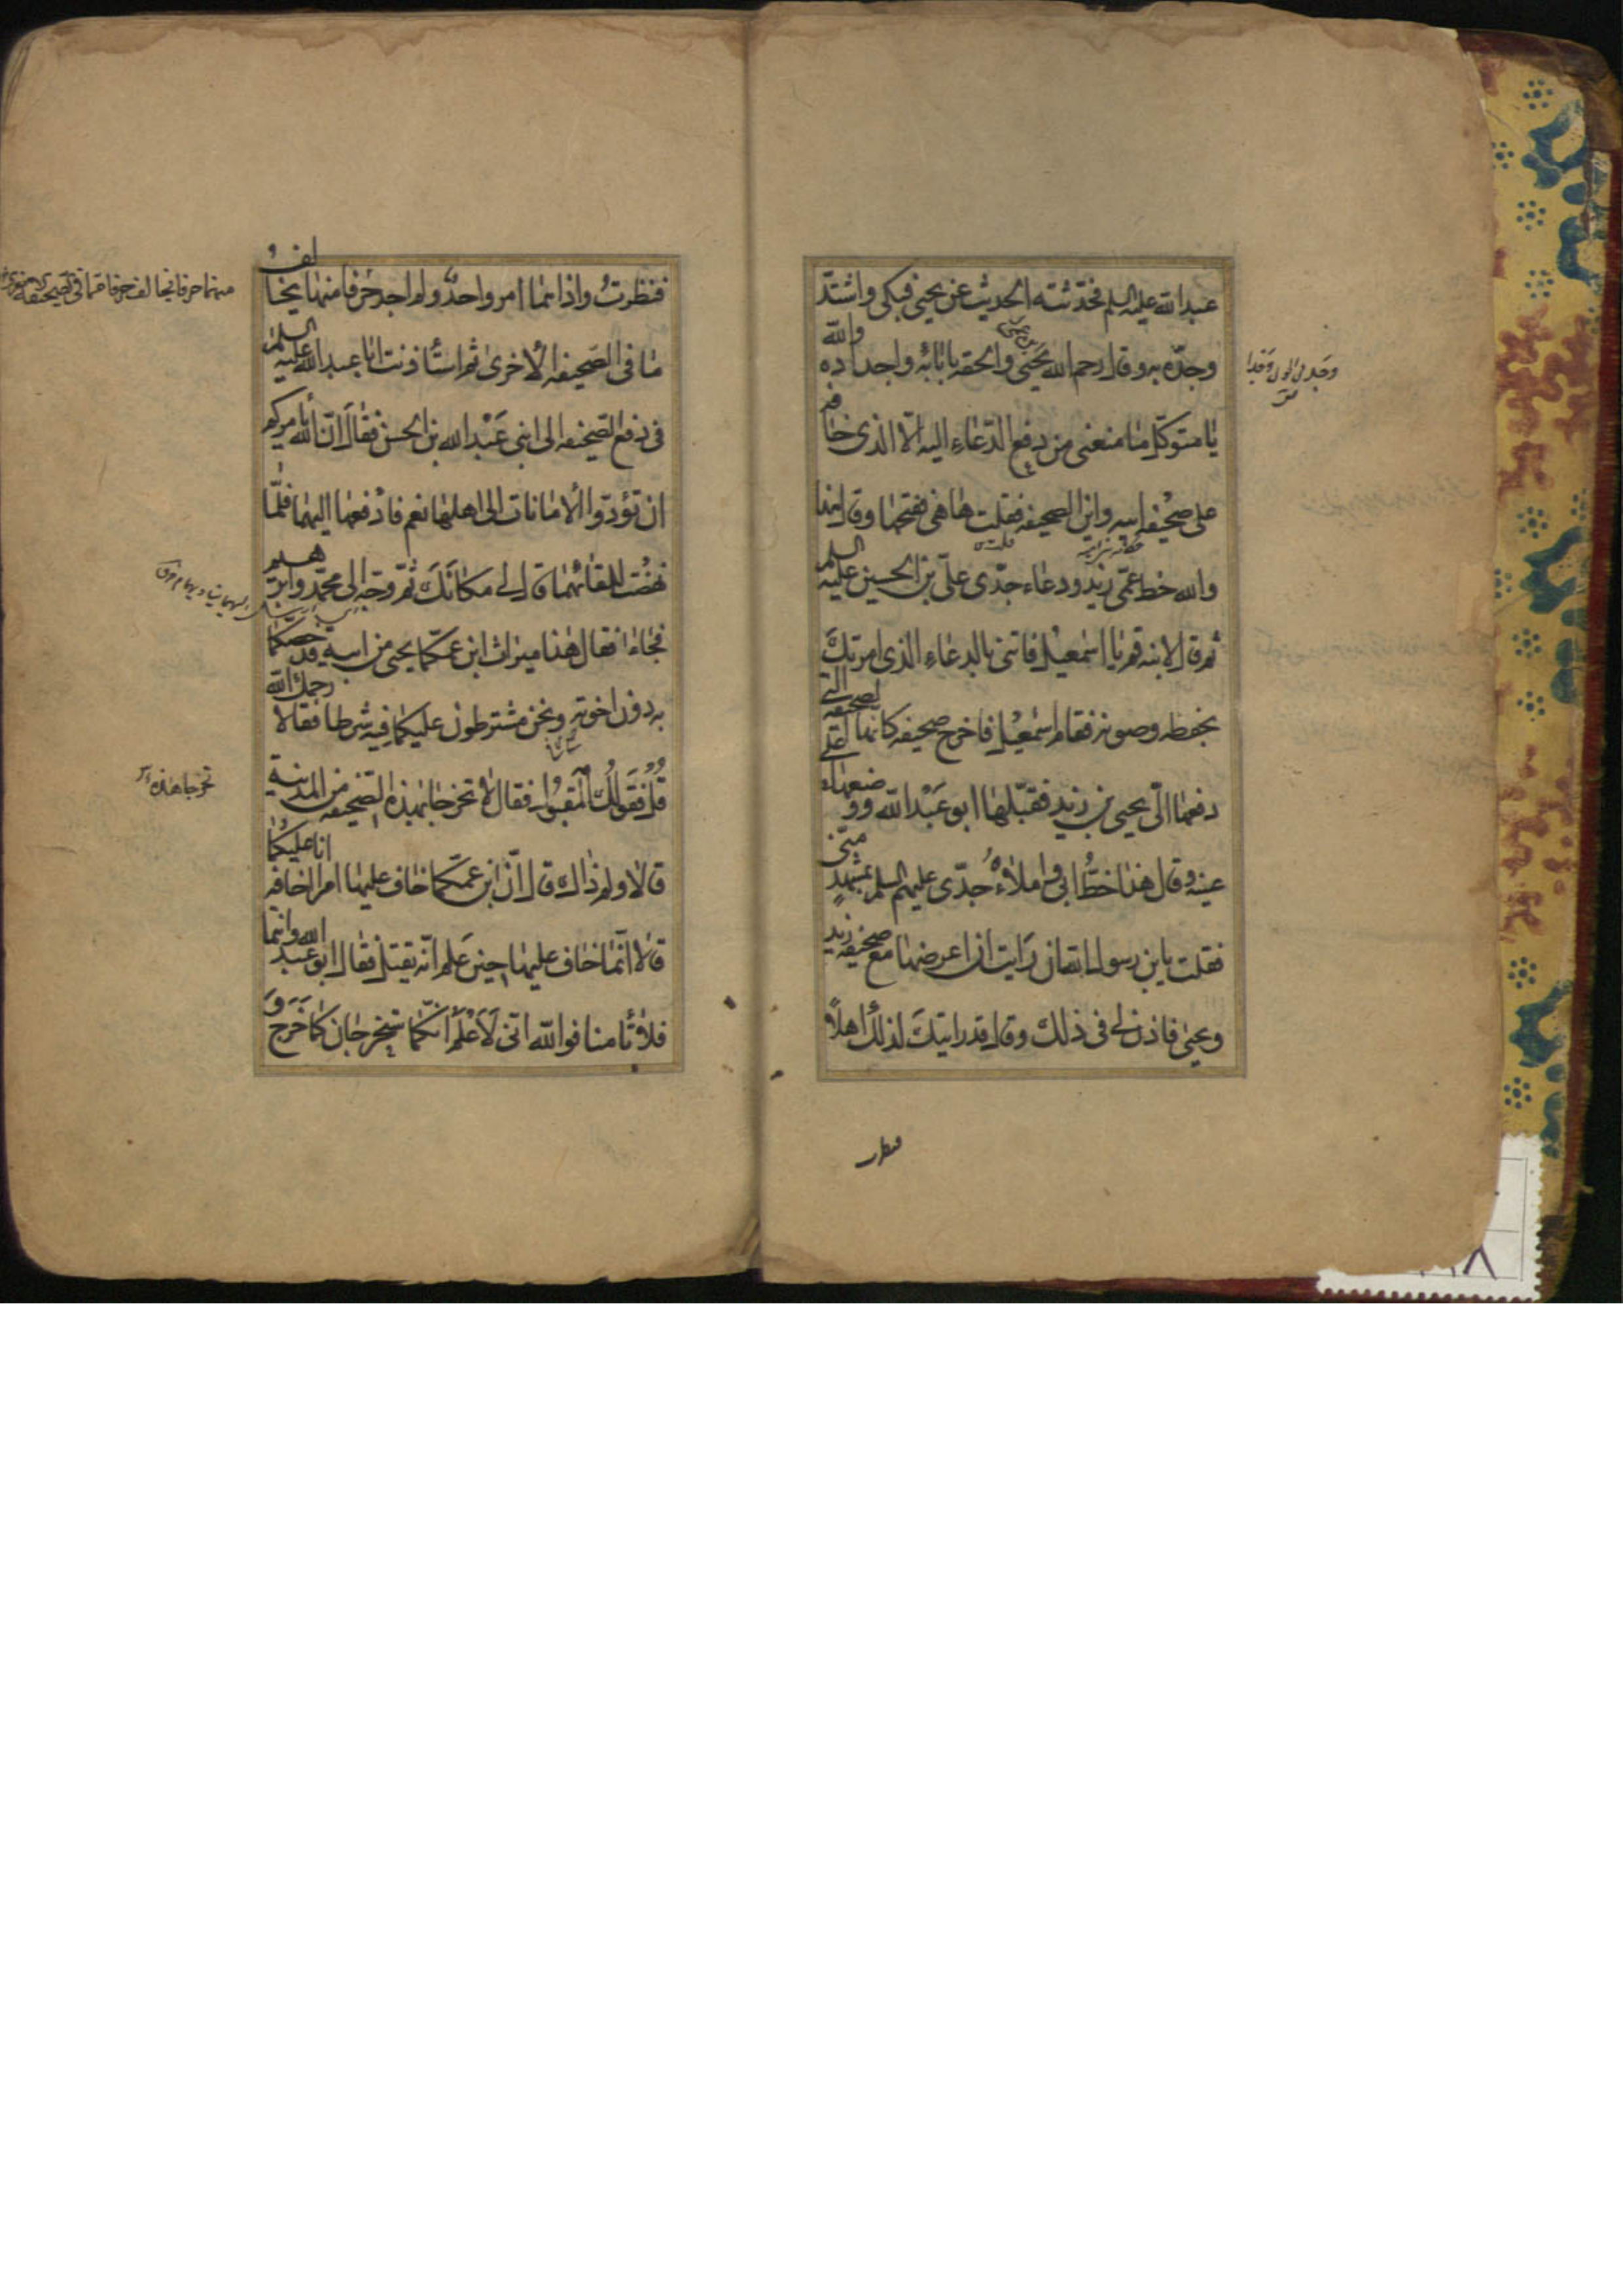 عبد الله عليه السلم فحدثته الحديث عن يحيى فبكى واشتد
وجده به وقال رحم الله يحيى والحقه بابائه واجداده والله
يا متوكل ما منعنى من دفع الدعاء اليه الا الذى خافه
على صحيفه ابيه واين الصحيفه فقلت ها هى ففتحها وقال هذا
والله خط عمى زيد ودعاء جدى على بن الحسين عليه السلم
ثم قال لابنه قم يا اسمعيل فاتنى بالدعاء الذى امرتك
بحفظه وصونه فقام اسمعيل فاخرج صحيفه كانها الصحيفه التى
دفعها الى يحيى بن زيد فقبلها ابو عبد الله ووضعها على
عينه وقال هذا خط ابى واملاء جدى عليهم السلم بمشهد منى
فقلت يابن رسول الله ان رايت ان اعرضها مع صحيفه زيد
ويحيى فاذن لى فى ذلك وقال قد رايتك لذلك اهلا
فنظرت
فنظرت واذا هما امر واحد ولم اجد حرفا منها يخالف
ما فى الصحيفه الاخرى ثم استاذنت ابا عبد الله عليه السلم
فى دفع الصحيفه الى ابنى عبد الله بن الحسن فقال ان الله يامركم
ان تؤدوا الامانات الى اهلها نعم فادفعها اليهما فلما
نهضت للقائهما قال لى مكانك ثم وجه الى محمد وابرهيم
فجاءا فقال هذا ميراث ابن عمكما يحيى من ابيه قد خصكما
به دون اخوته ونحن مشترطون عليكما فيه شرطا فقالا رحمك الله
قل فقولك المقبول فقال لا تخرجا بهذه الصحيفه من المدينة
قالا ولم ذاك قال ان ابن عمكما خاف عليها امرا اخافه انا عليكما
قالا انما خاف عليها حين علم انه يقتل فقال ابو عبد الله وانتما
فلا تامنا فوالله انى لاعلم انكما ستخرجان كما خرج و